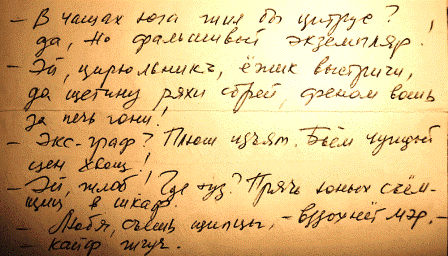 - В чащах юга жил бы цитрус?
да, но фальшивый экземпляр!
- Эй, цирюльникъ, ёжик выстриги,
да щетину ряхи сбрей, феном вошь
за печь гони!
- Экс-граф? Плюш изъят. Бьём чуждый
цен хвощ!
- Эй, жлоб! Где туз? Прячь юных съём-
щиц в шкаф.
- Любя, съешь щипцы, - вздохнёт мэр, -
- кайф жгуч.